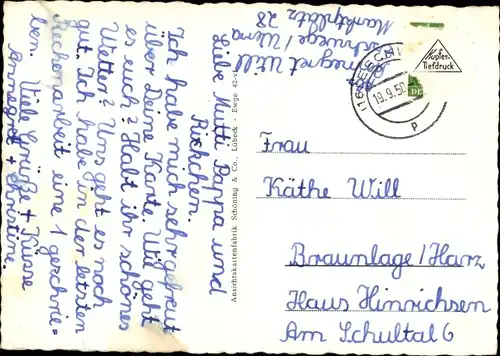 Liebe Mutti Pappa und
Rickchen.
Ich habe mich sehr gefreut
über Deine Karte. Wie geht
es euch? Habt ihr schönes
Wetter? Uns geht es noch
gut. Ich habe in der letzten
Rechenarbeit eine 1 geschrie=
ben. Viele Grüße + Küsse
Annegret + Christine.
Ansichtskartenfabrik Schöning & Co., Lübeck - Ewge 42-v
Annegret Will
Eschwege/Werra
Marktplatz 28
(16) ESCHW
19.9.5
p
Kupfer-
Tiefdruck
Frau
Käthe Will
Braunlage/Harz
Haus Hinrichsen
Am Schultal 6